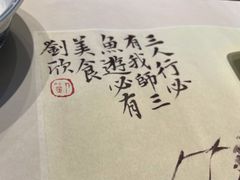 三人行必
有我師三
魚遊必有
美食
劉欣